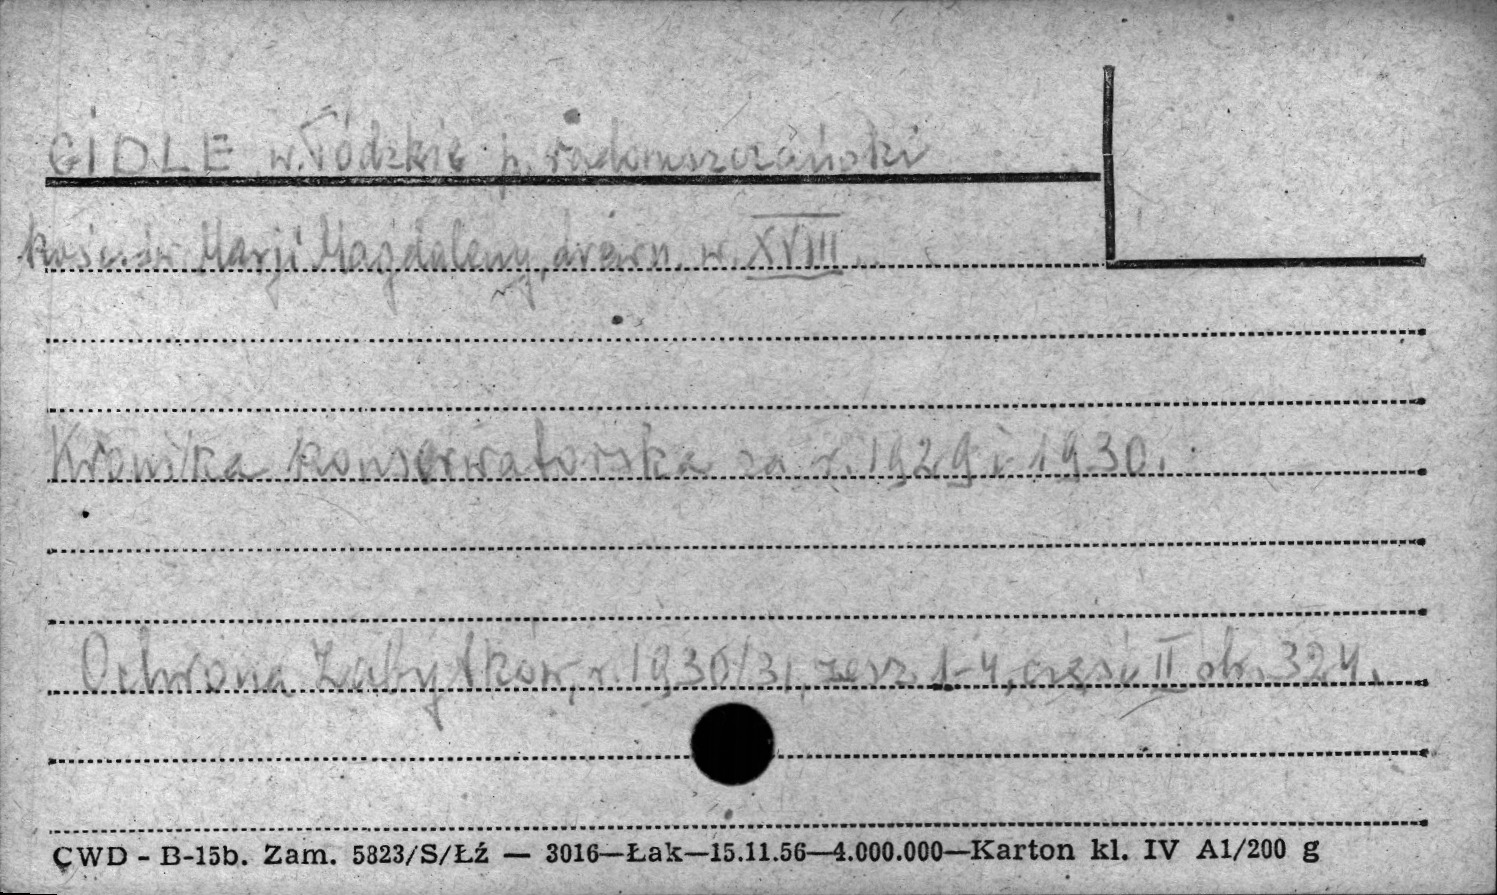 GIDLE w. Łódzkie p. radomszczański
kośc. św. Marji Magdaleny, drewn. w. XVIII
Kronika konserwatorska za r. 1929 i 1930.
Ochrona Zabytków, r. 1930/31, zesz. 1-4, część II str. 324.
CWD - B-15b. Zam. 5823/S/Łź — 3016—Łak—15.11.56—4.000.000—Karton kl. IV A1/200 g